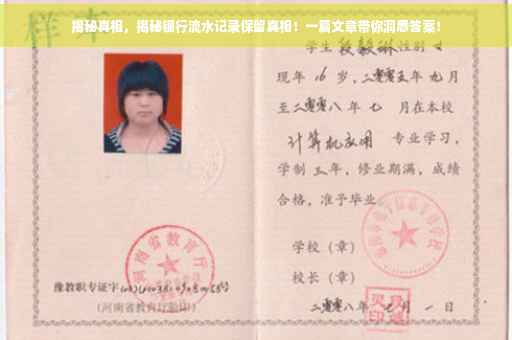 揭秘真相，揭秘银行流水记录保留真相！一篇文章带你洞悉答案！
样本
学生 段毅琳 性别 女
现年 16 岁，二零零五年 九月
至二零零八年 七 月在本校
计算机应用 专业学习，
学制 三年，修业期满，成绩
合格，准予毕业
学校（章）
校长（章）
二零零八年 七 月 一 日
河南省教育厅
豫教职专证字
（河南省教育厅验印）